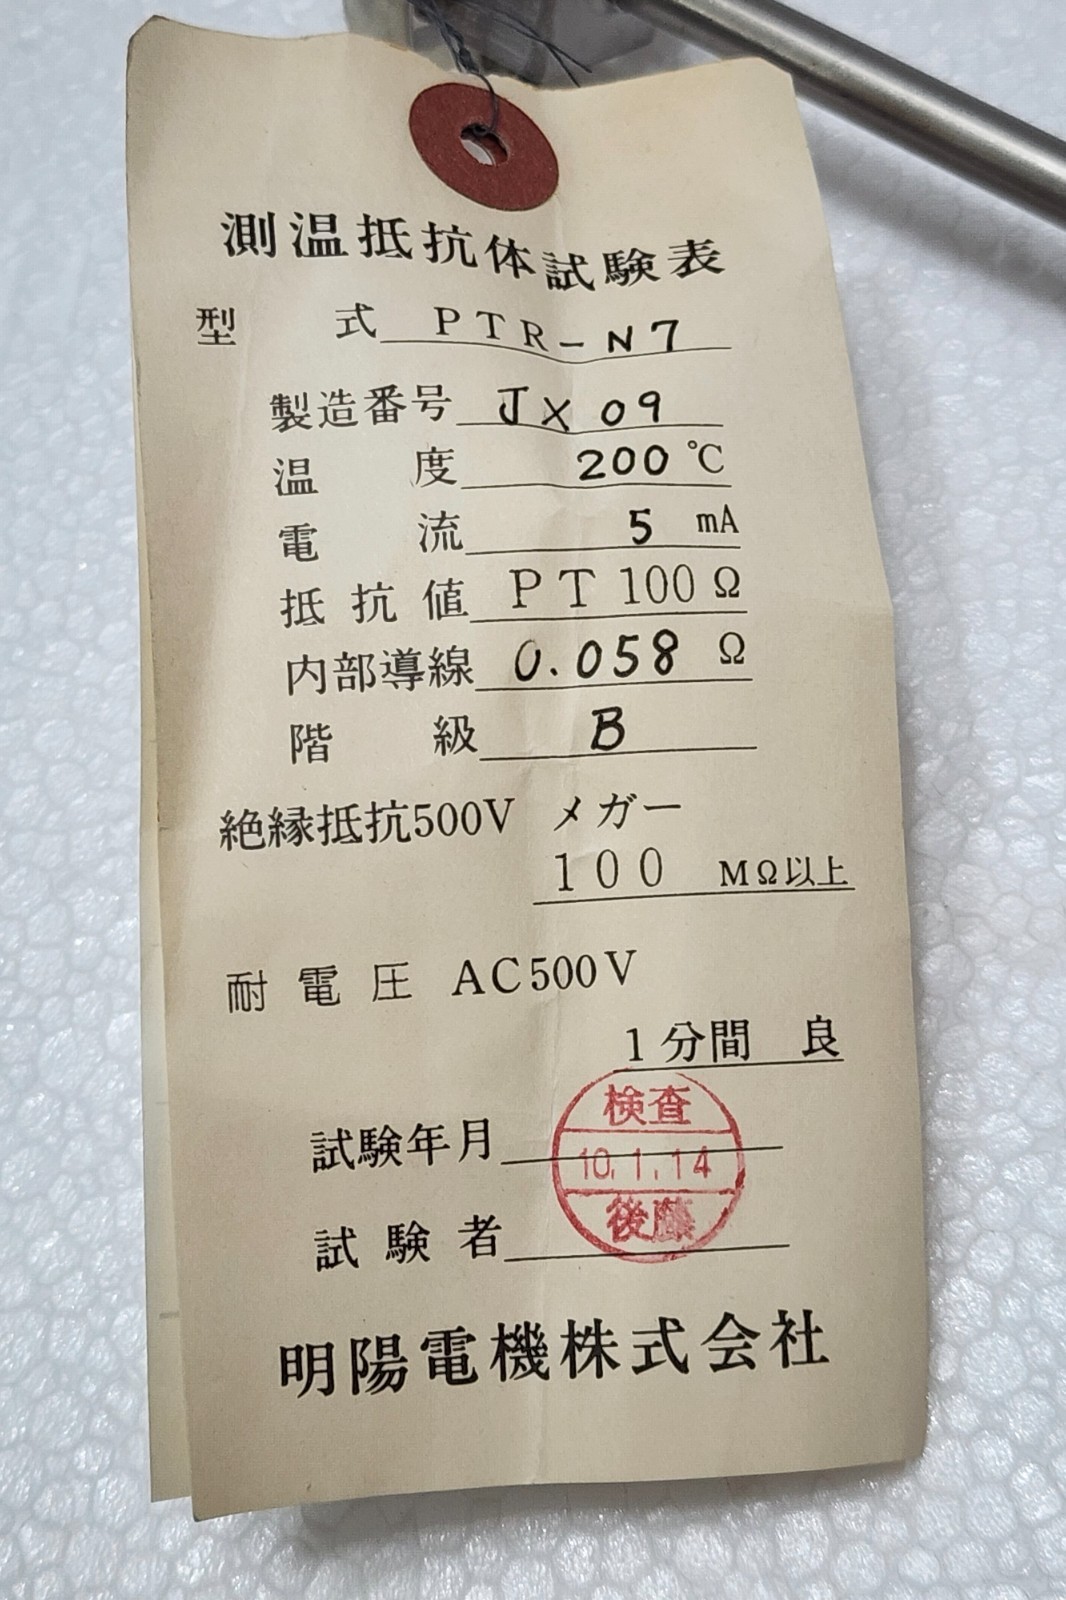 測温抵抗体試験表
型 式 PTR-N7
製造番号 JX09
温 度 200 ℃
電 流 5 mA
抵抗値 PT100Ω
内部導線 0.058 Ω
階 級 B
絶縁抵抗500V メガー
100 MΩ以上
耐電圧 AC500V
1分間 良
検査
試験年月 10.1.14
試験者 後藤
明陽電機株式会社